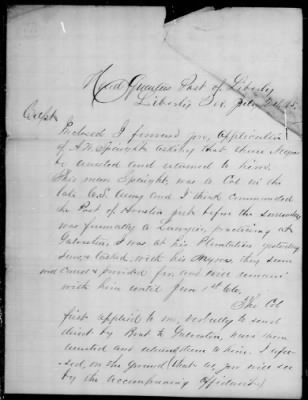 Head Quarters Post of Liberty
Liberty Tex.
Capt
Enclosed I forward you, application
of A.W. Speight asking that three Negroes
be arrested and returned to him.
This man Speight, was a Col in the
late C.S. Army and I think commanded
the Post of Houston just before the surrender
was formerly a Lawyer, practicing at
Galveston. I was at his Plantation yesterday
and talked with his negroes, they seem
and provided for, and will remain
with him until Jany 1st
The Col
first applied to me, verbally to send
direct by Boat to Galveston, have them
arrested and returned to him. I refu-
sed, on the ground (that as you will see
by the accompanying affidavit)